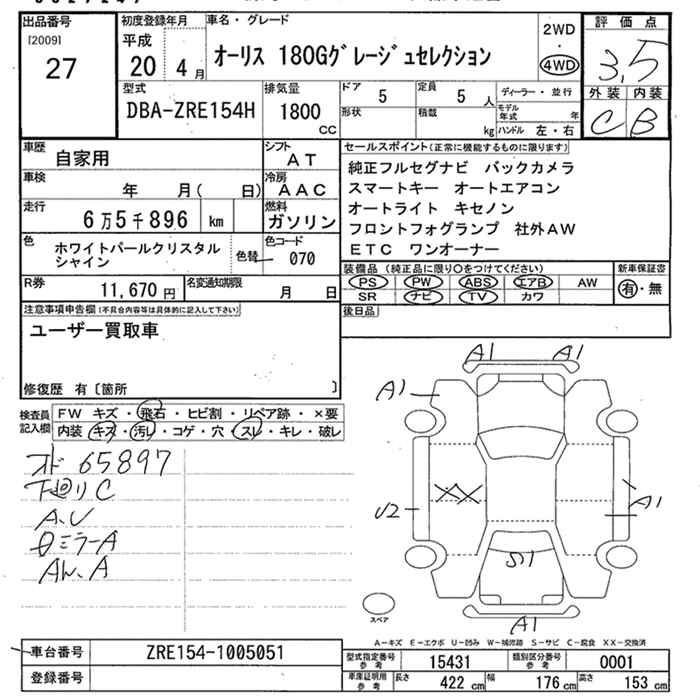 出品番号
[2009]
27
初度登録年月
平成
20 4月
車名・グレード
オーリス 180Gグレージュセレクション
2WD
4WD
評価点
3,5
外装 内装
C B
型式
DBA-ZRE154H
排気量
1800
CC
ドア
5
定員
5 人
ディーラー・並行
形状
積載
kg
モデル年式 年
ハンドル 左・右
車歴
自家用
シフト
AT
車検
年 月( 日)
冷房
AAC
走行
6万5千896 km
燃料
ガソリン
色
ホワイトパールクリスタル
シャイン
色替
色コード
070
R券
11,670 円
名変通知期限
月 日
セールスポイント(正常に機能するものに限ります)
純正フルセグナビ バックカメラ
スマートキー オートエアコン
オートライト キセノン
フロントフォグランプ 社外AW
ETC ワンオーナー
装備品(純正品に限り○をつけてください)
PS PW ABS エアB AW
SR ナビ TV カワ
新車保証書
有・無
後日品
注意事項申告欄(不具合内容等は具体的に記入して下さい)
ユーザー買取車
修復歴 有〔箇所 〕
検査員
記入欄
FW キズ・飛石・ヒビ割・リペア跡・×要
内装 キズ・汚レ・コゲ・穴・スレ・キレ・破レ
オド 65897
下廻りC
A.U
ミラーA
A1 A1
A1
XX
U2
A1
S1
A1
スペア
A-キズ E-エクボ U-凹み W-補修跡 S-サビ C-腐食 XX-交換済
車台番号
ZRE154-1005051
登録番号
型式指定番号
参考
15431
類別区分番号
参考
0001
車庫証明用
参考
長さ 422 cm
幅 176 cm
高さ 153 cm